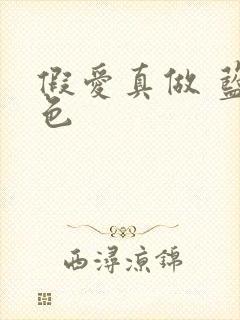 假愛真做 藍
色
西潯涼錦